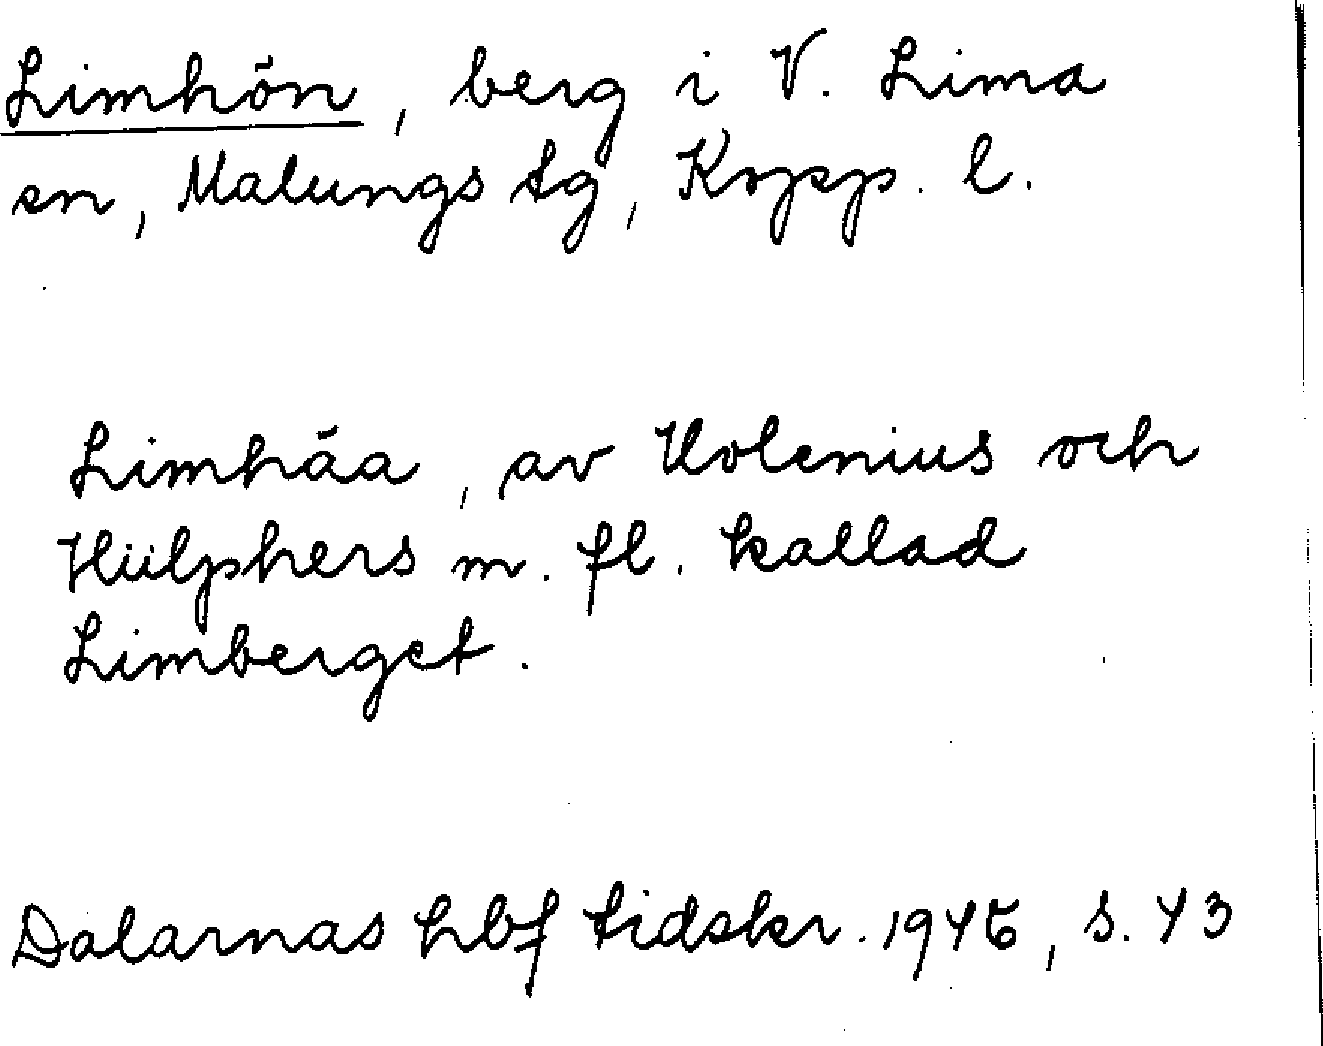 Limhön, berg i V. Lima
sn, Malungs tg, Kopp. l.
Limhåa, av Holenius och
Hülphers m. fl. kallad
Limberget.
Dalarnas hbf tidskr. 1945, s. 43